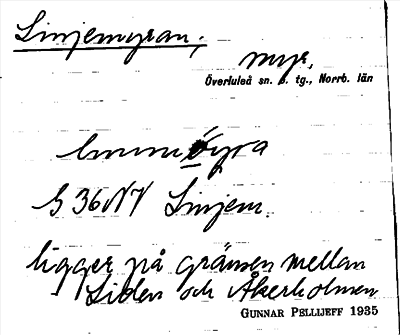 Linjemyran,
myr,
Överluleå sn. s. tg., Norrb. län
G 36 NV Linjem.
ligger på gränsen mellan
Liden och Åkerholmen
GUNNAR PELLIJEFF 1935